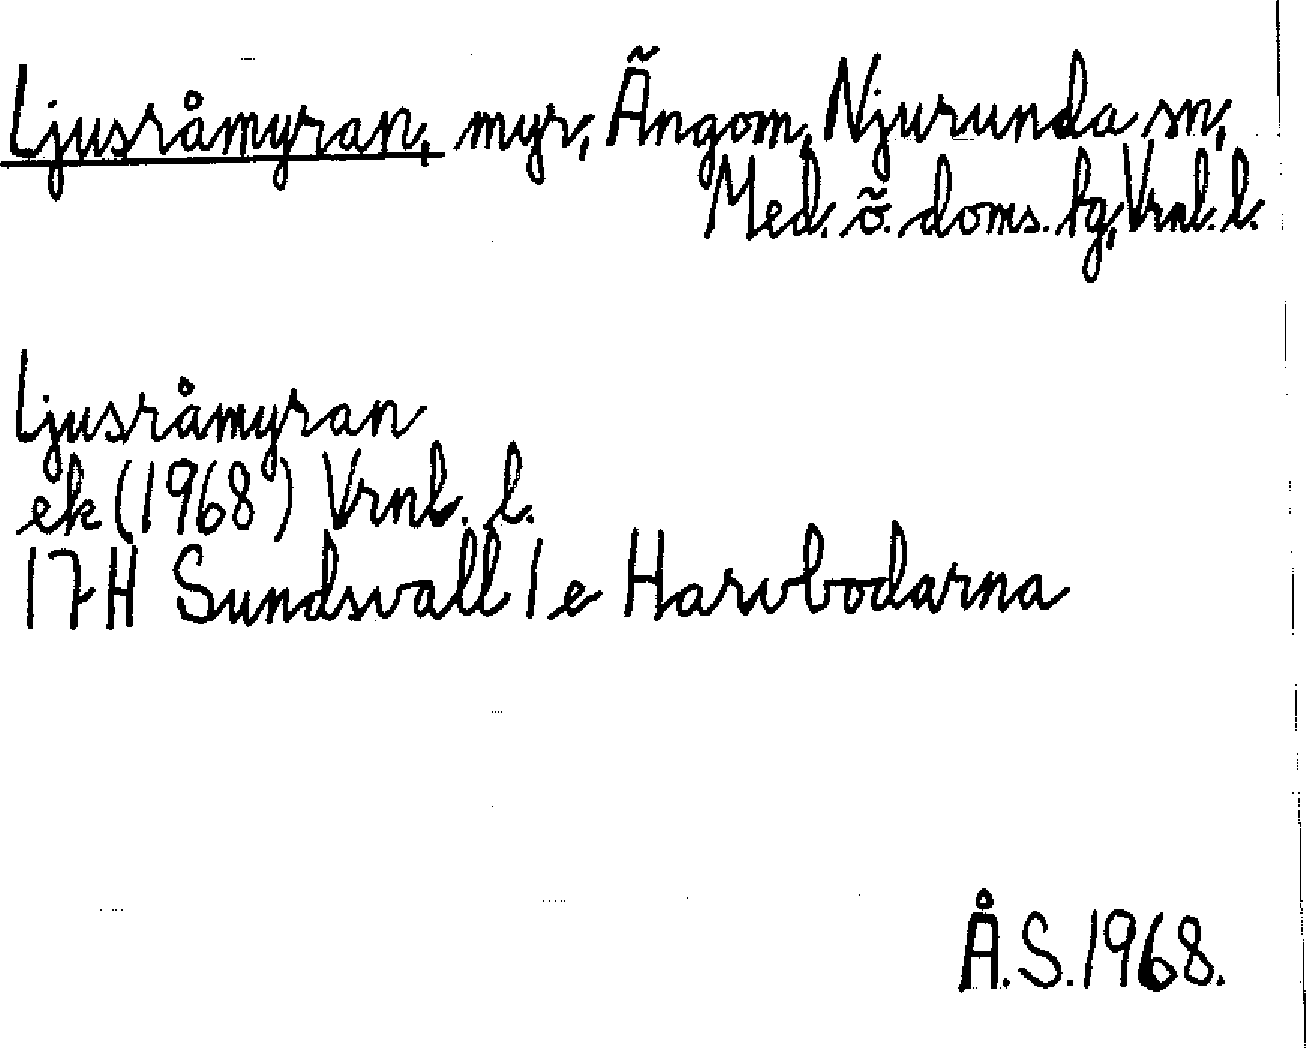 Ljusråmyran, myr, Ängom, Njurunda sn,
Med. ö. doms. tg, Vrnl. l.
Ljusråmyran
ek (1968) Vrnl. l.
17H Sundsvall 1 e Harvbodarna
Å.S. 1968.